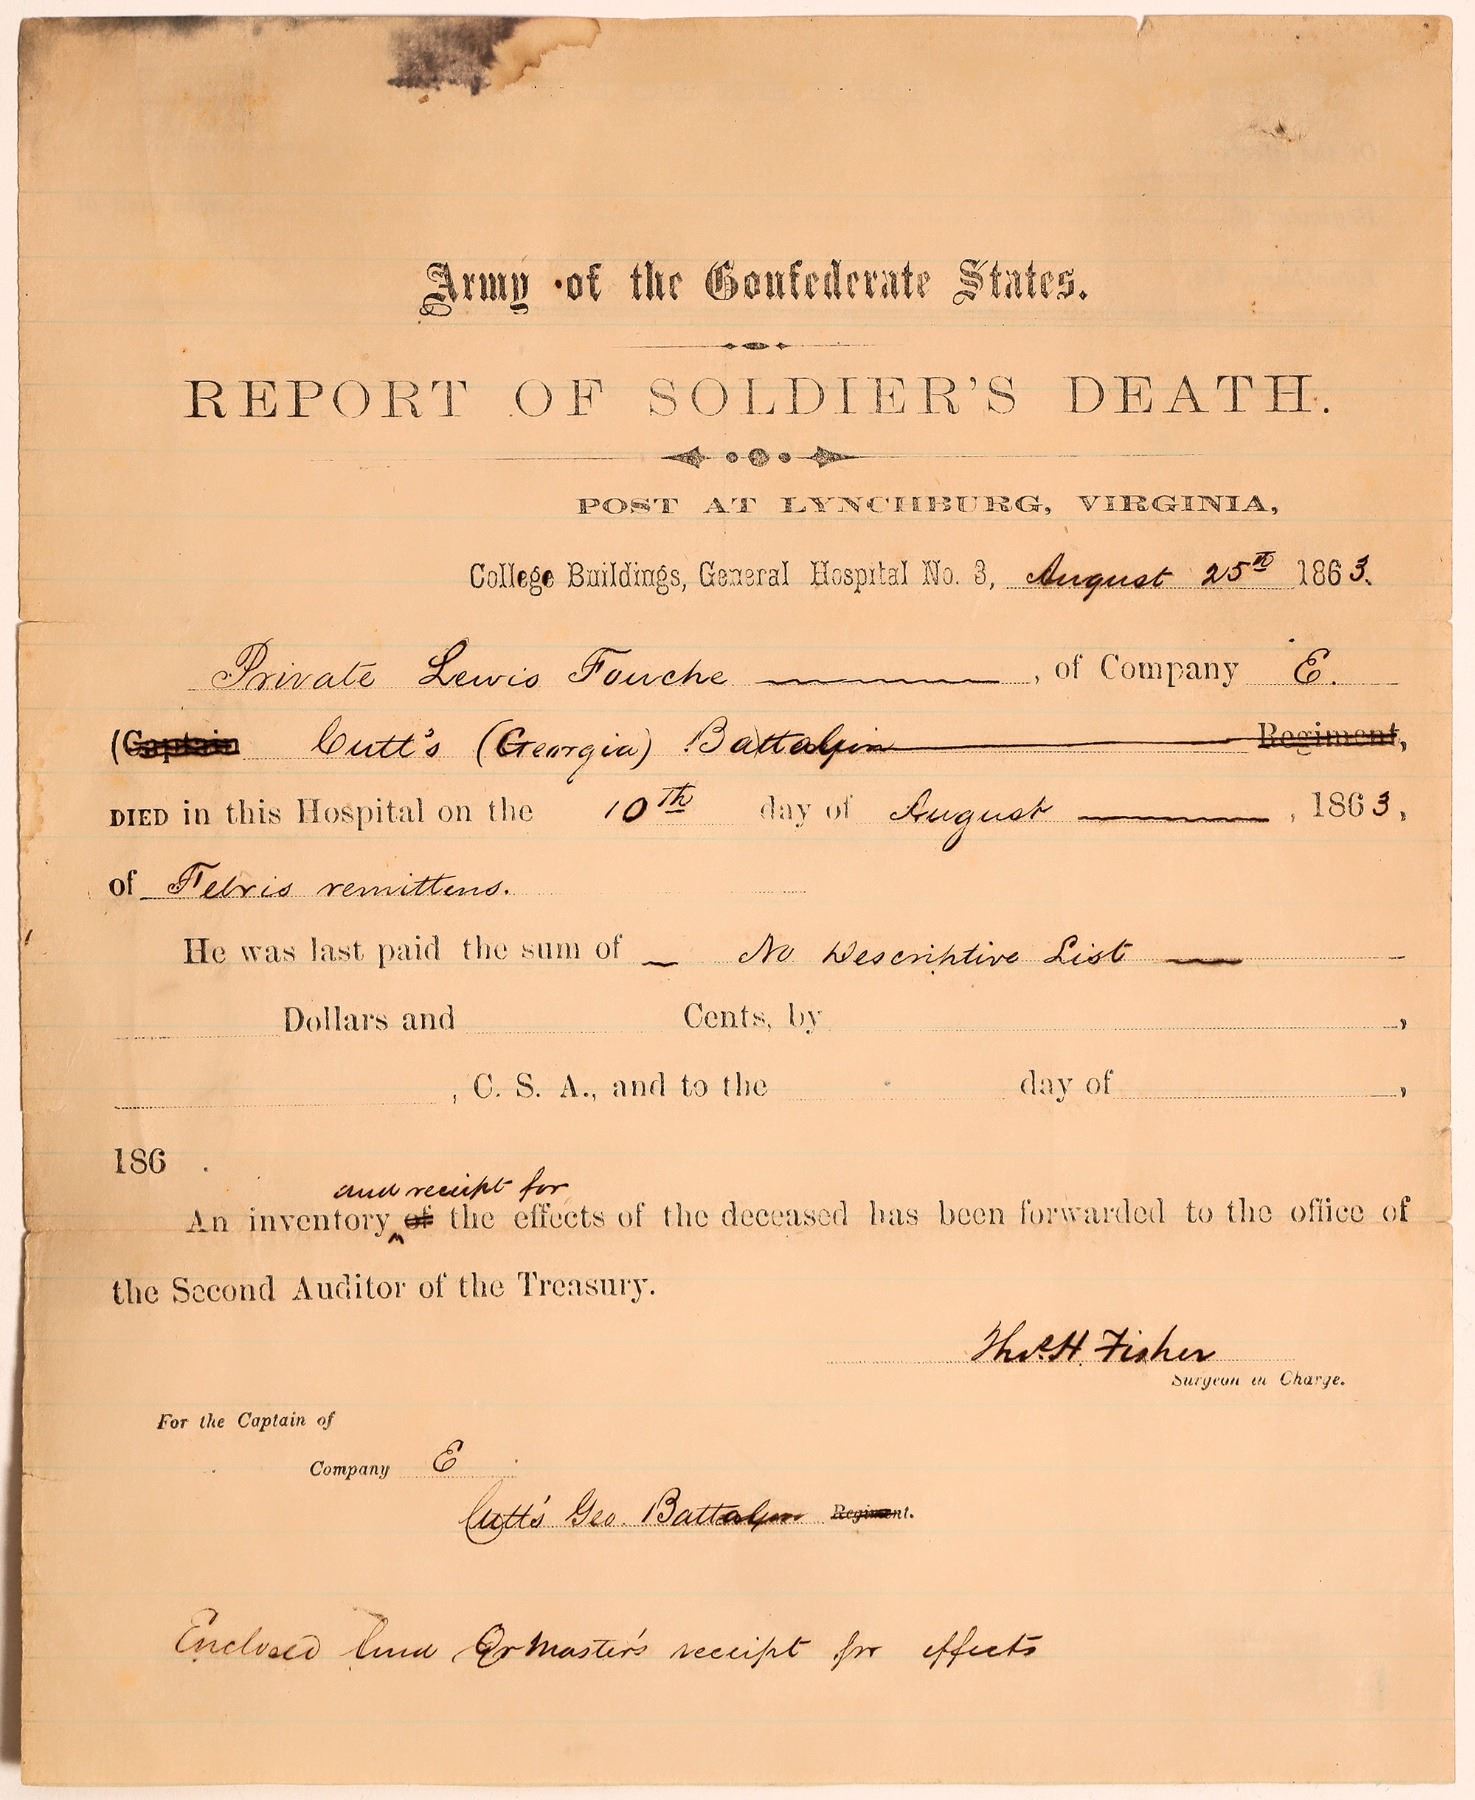 Army of the Confederate States.
REPORT OF SOLDIER'S DEATH.
POST AT LYNCHBURG, VIRGINIA,
College Buildings, General Hospital No. 3, August 25th 1863.
Private Lewis Fouche , of Company E.
(Captain Cutt's (Georgia) Battalion Regiment,
DIED in this Hospital on the 10th day of August , 1863,
of Febris remittens.
He was last paid the sum of No Descriptive List
Dollars and Cents, by ,
, C. S. A., and to the day of ,
186 .
and receipt for
An inventory of the effects of the deceased has been forwarded to the office of
the Second Auditor of the Treasury.
Thos. H. Fisher
Surgeon in Charge.
For the Captain of
Company E
Cutt's Geo. Battalion Regiment.
Enclosed find Qr Master's receipt for effects